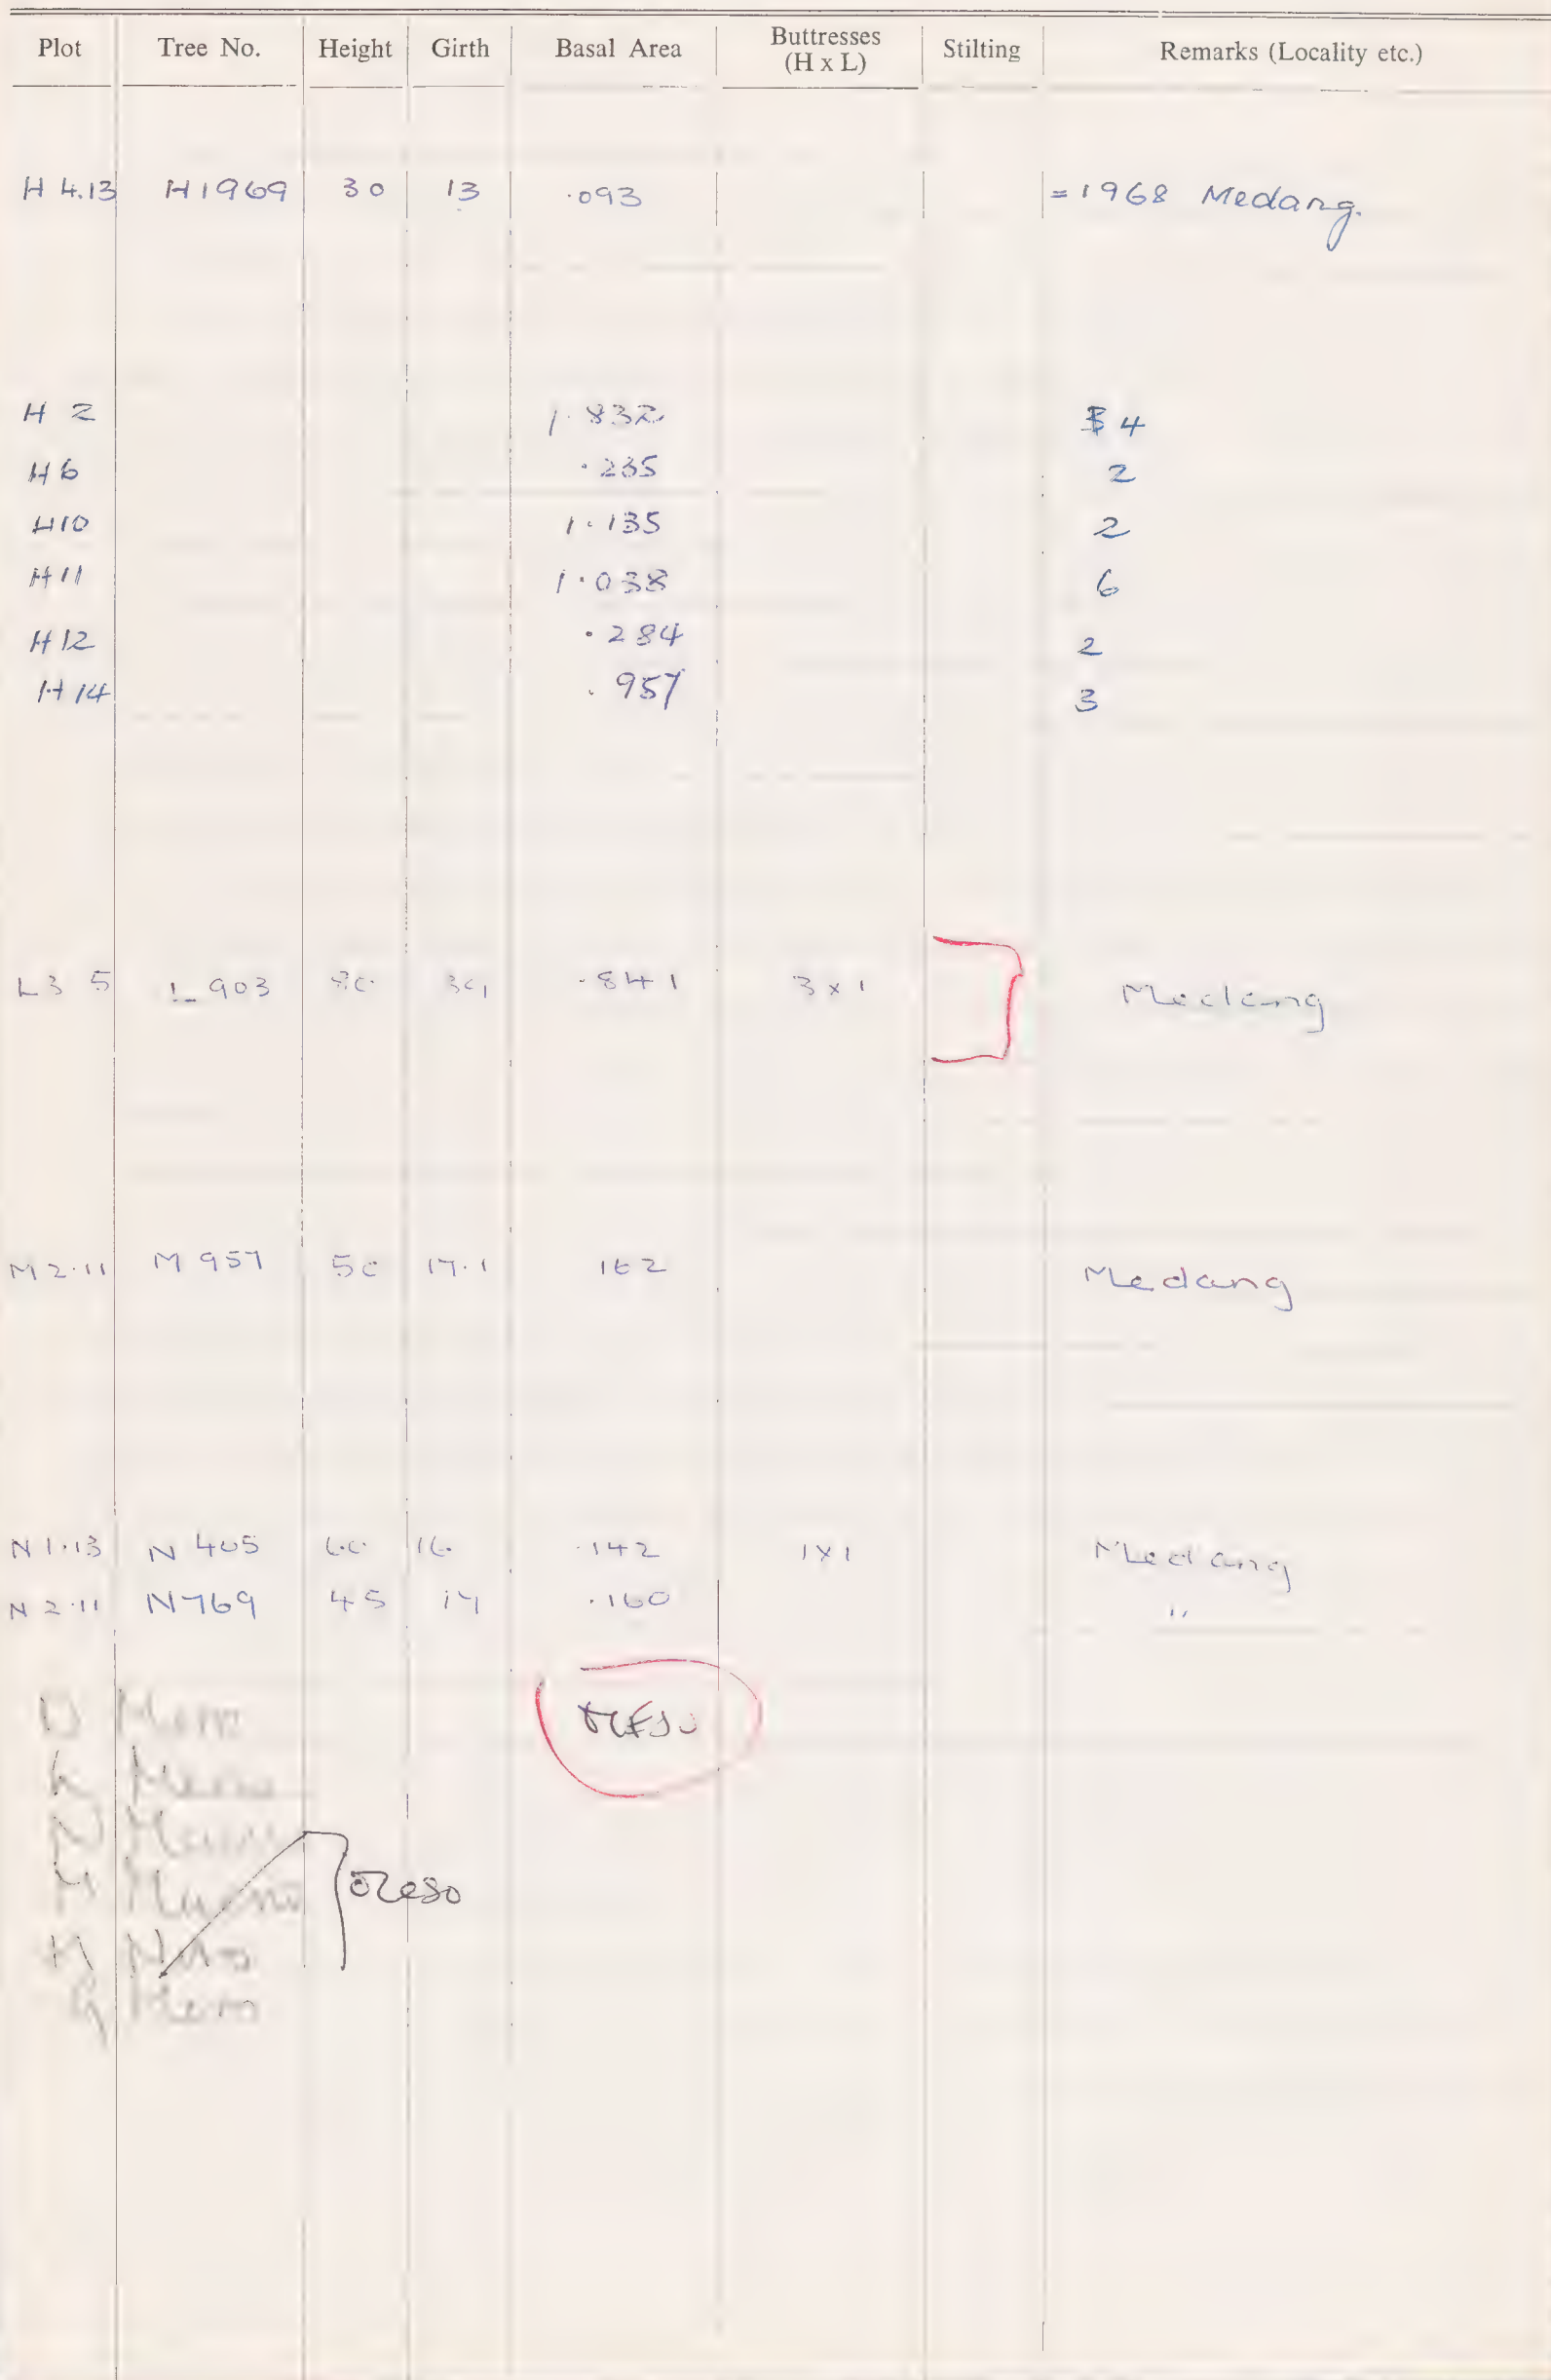 Plot Tree No. Height Girth Basal Area Buttresses (H x L) Stilting Remarks (Locality etc.)
H 4.13 H1969 30 13 .093 = 1968 Medang.
H 2 1.832 4
H6 .235 2
H10 1.135 2
H11 1.038 6
H12 .284 2
H14 .957 3
L3 5 L903 .841 3x1 Medang
M2.11 M957 50 17.1 162 Medang
N1.13 N405 60 16 .142 1x1 Medang
N2.11 N769 45 17 .160 "